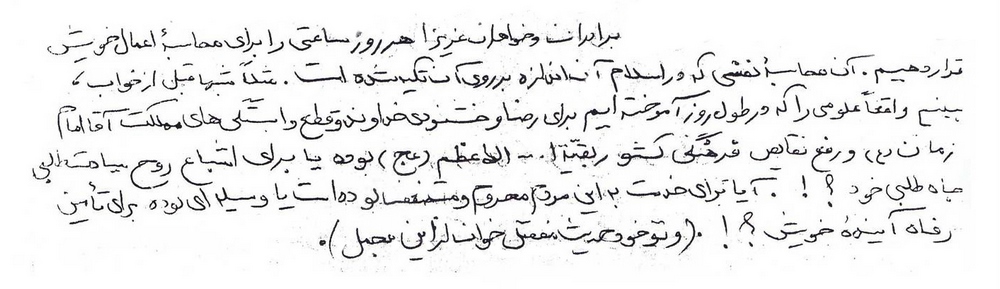 برادران و خواهران عزیز! هر روز ساعتی را برای محاسبهٔ اعمال خویش
قرار دهیم. آن محاسبهٔ نفسی که در اسلام آن اندازه بر روی آن تکیه شده است. مثلاً شبها قبل از خواب،
ببینیم واقعاً علومی را که در طول روز آموخته ایم برای رضا و خشنودی خداوند و قطع وابستگی های مملکت آقا امام
زمان (ع) و رفع نقایص فرهنگی کشور بقیة ا... الاعظم (عج) بوده یا برای اشباع روح
جاه طلبی خود؟!. آیا برای خدمت به این مردم محروم و مستضعف بوده است یا وسیله ای بوده برای تأمین
رفاه آیندهٔ خویش؟!. (و تو خود حدیث مفصل خوان از این مجمل).